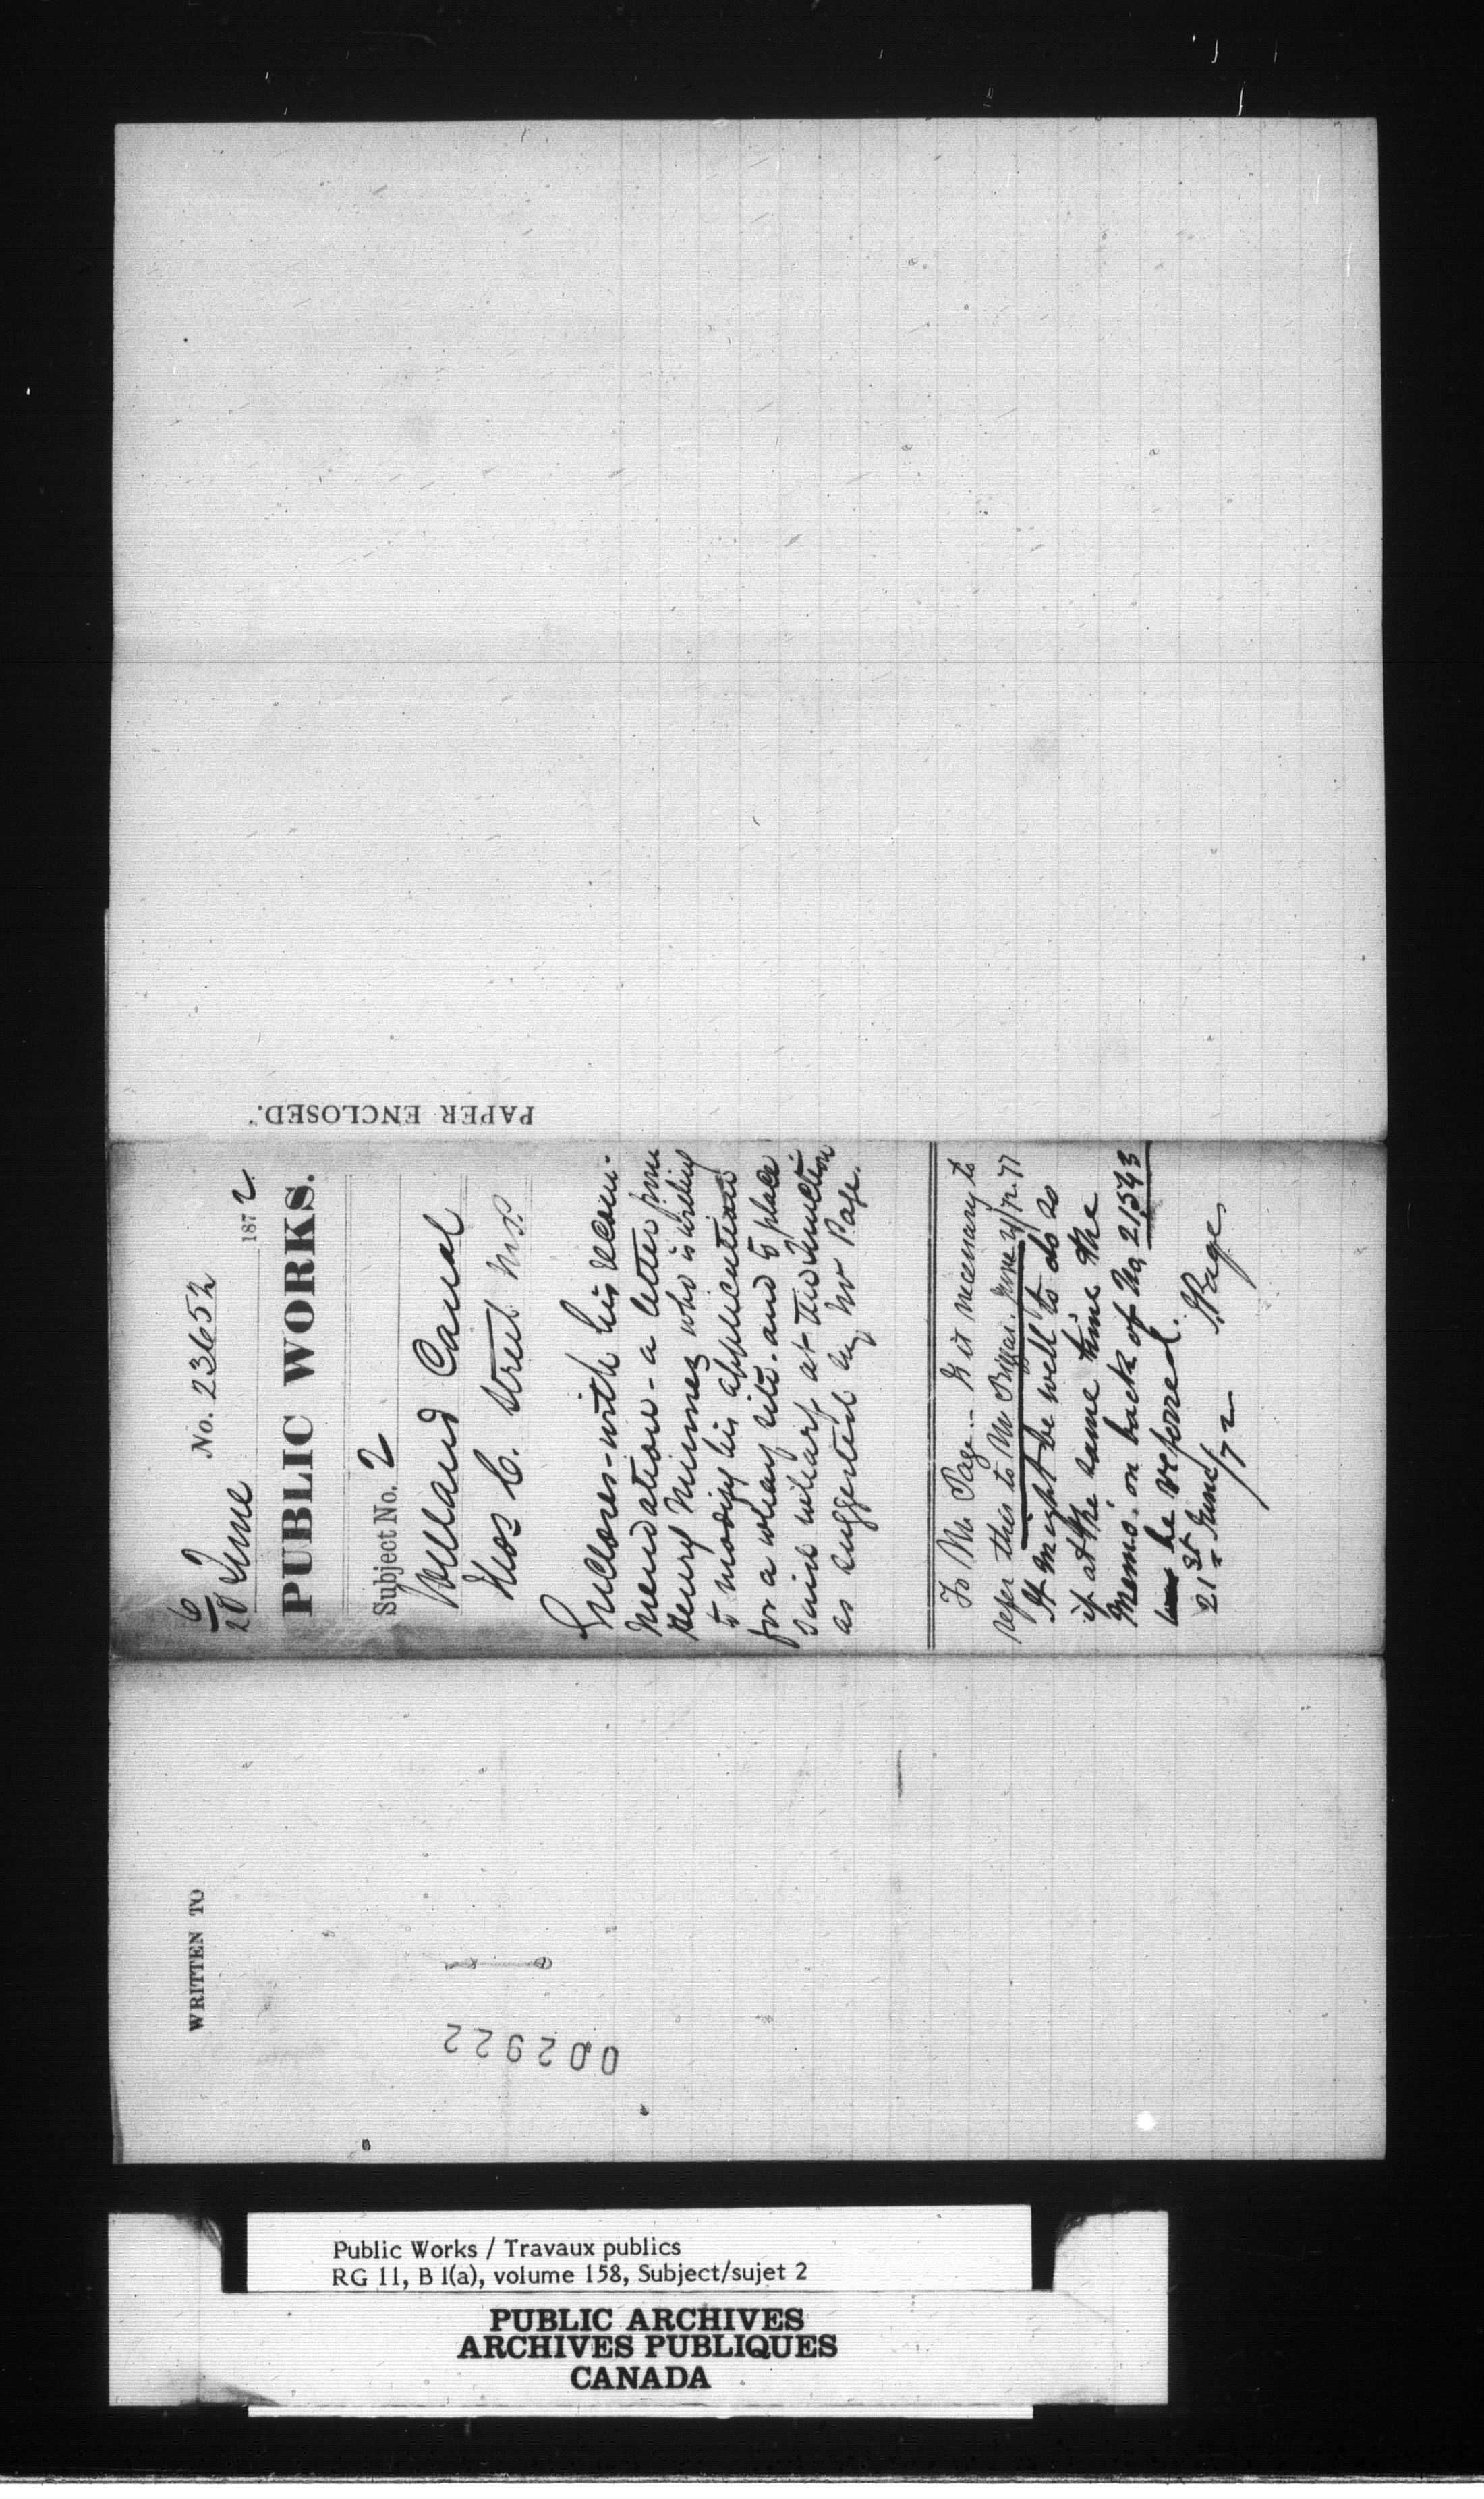 6/20 June No. 23652 1872
PUBLIC WORKS.
Subject No. 2
Welland Canal
Thos C. Street M.P.
Incloses - with his recom-
mendation - a letter from
Henry who is willing
to modify his application
for a wharf site. and to place
said wharf at the Junction
as suggested by Mr Page.
To Mr. Page - Is it necessary to
refer this to Mr June 21/72
It might be well to do so
if at the same time the
Memo. on back of No 21543
be referred.
21st June/72 J Page
PAPER ENCLOSED.
WRITTEN TO
002922
Public Works / Travaux publics
RG 11, B 1(a), volume 158, Subject/sujet 2
PUBLIC ARCHIVES
ARCHIVES PUBLIQUES
CANADA